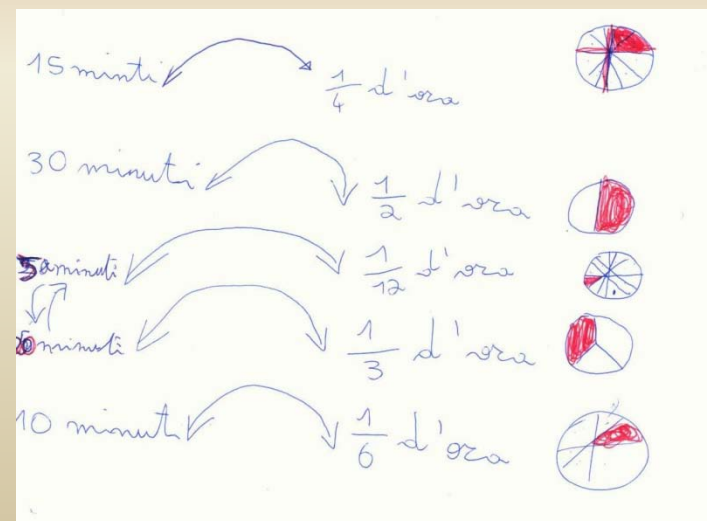 15 minti 1/4 d'ora
30 minuti 1/2 d'ora
5 minuti 1/12 d'ora
20 minuti 1/3 d'ora
10 minuti 1/6 d'ora